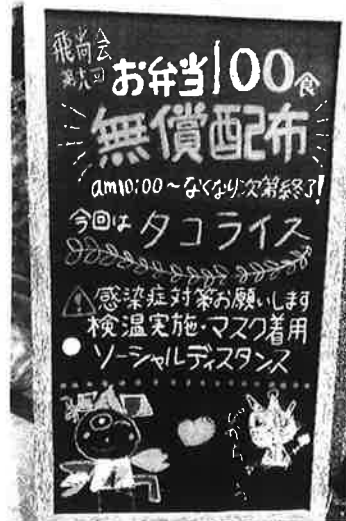 飛尚会
第九回
お弁当100食
無償配布
am10:00～なくなり次第終了!
今回は タコライス
⚠感染症対策お願いします
検温実施・マスク着用
ソーシャルディスタンス